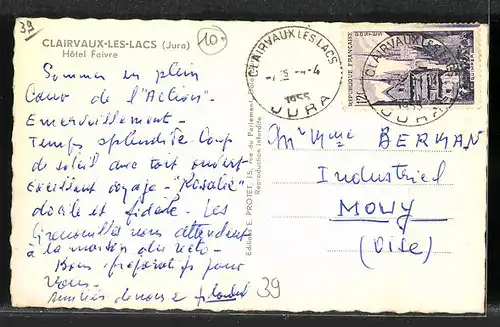 39
10.
CLAIRVAUX-LES-LACS (Jura)
Hôtel Faivre
Sommes en plein
Cœur de l'"Action"
Emerveillement -
Temps splendide Coup
de soleil avec toit ouvert
excellent voyage - "Rosalie"
docile et fidèle. Les
Grenouilles nous attendent
à la maison du
Bons préparatifs pour
vous -
Amitiés de nous 2
39
Editions E. PROTET, 15, rue du Parlement, Dole
Reproduction interdite
CLAIRVAUX LES LACS
4-4
1955
JURA
REPUBLIQUE FRANÇAISE
POSTES
12F
CLAIRVAUX LES LACS
1955
JURA
Mr Mme BERMAN
Industriel
MOUY
(Oise)